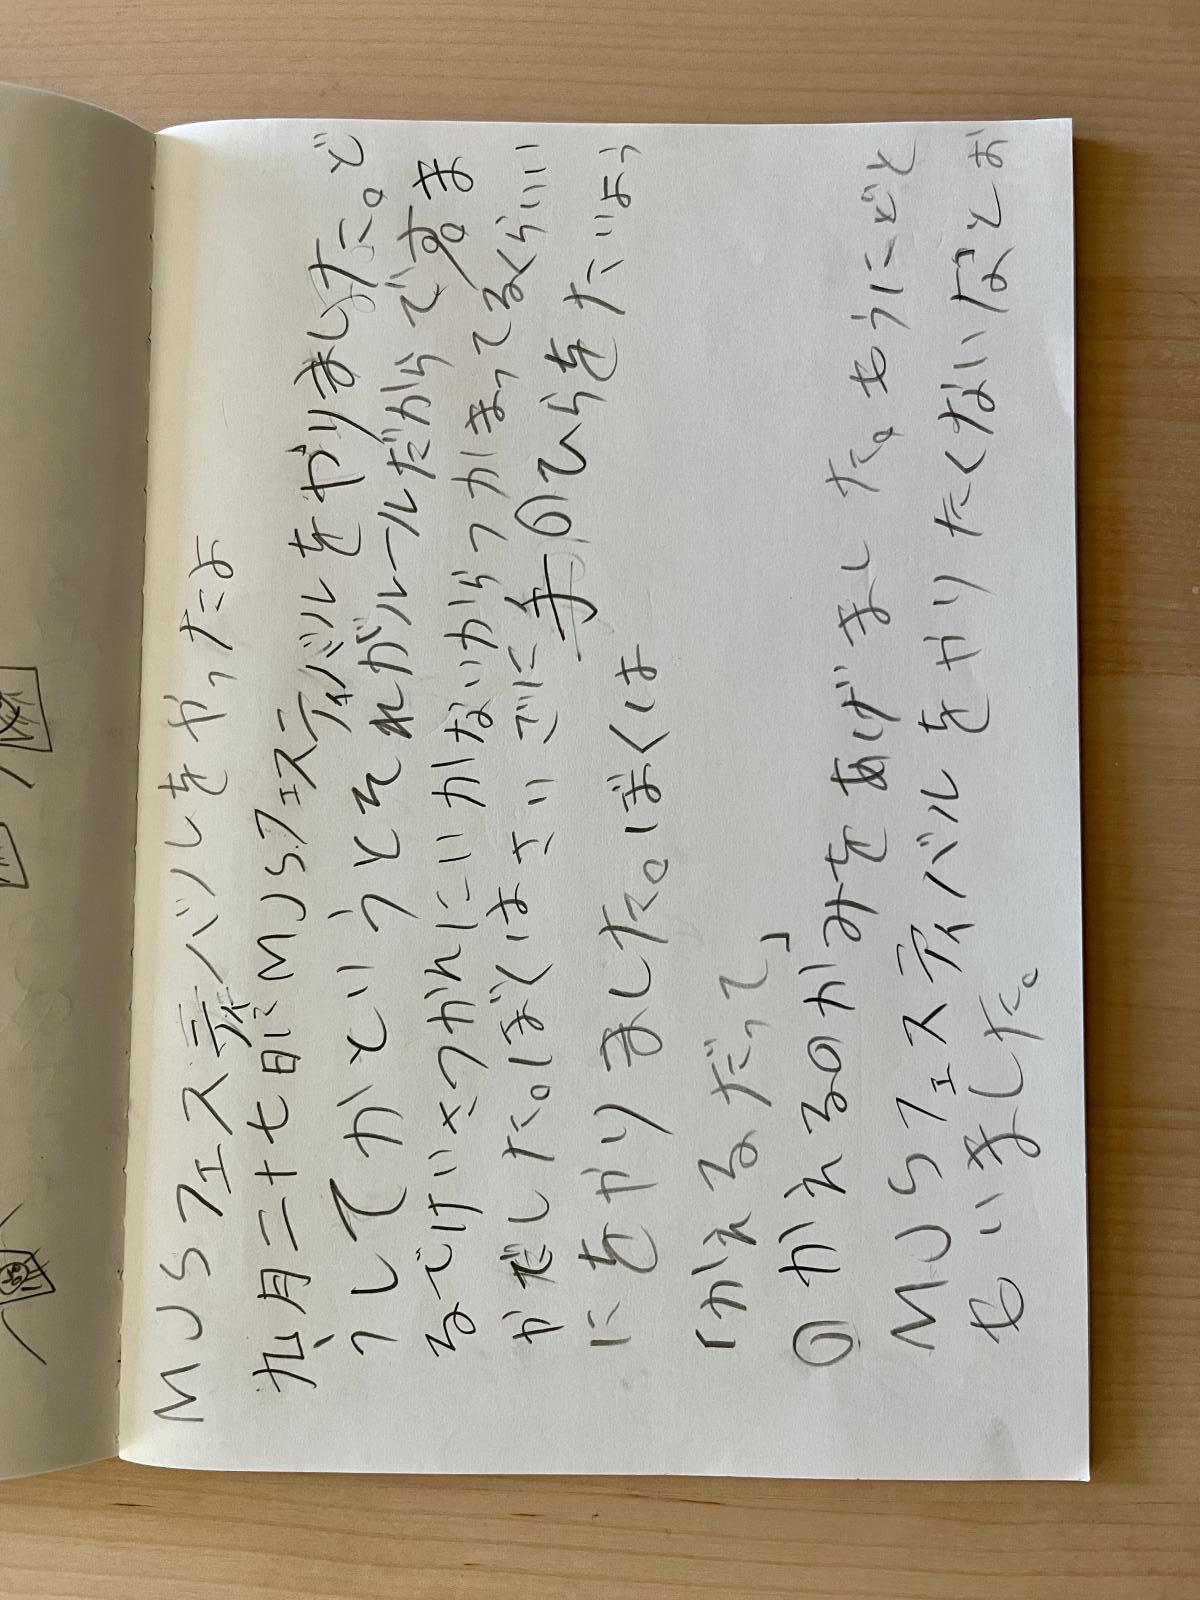 MJSフェスティバルをやったよ
九月二十七日にMJSフェスティバルをやりました。ど
うしてかというとそれがルールだからです。ま
るでけいさつかんにいかないからつかまってるくらいい
がだした。ぼくはさいごに手のひらをたいよう
にをやりました。ぼくは
「かえるだって」
のかえるのかみをあげました。もうにどと
MJSフェスティバルをやりたくないなとお
もいました。